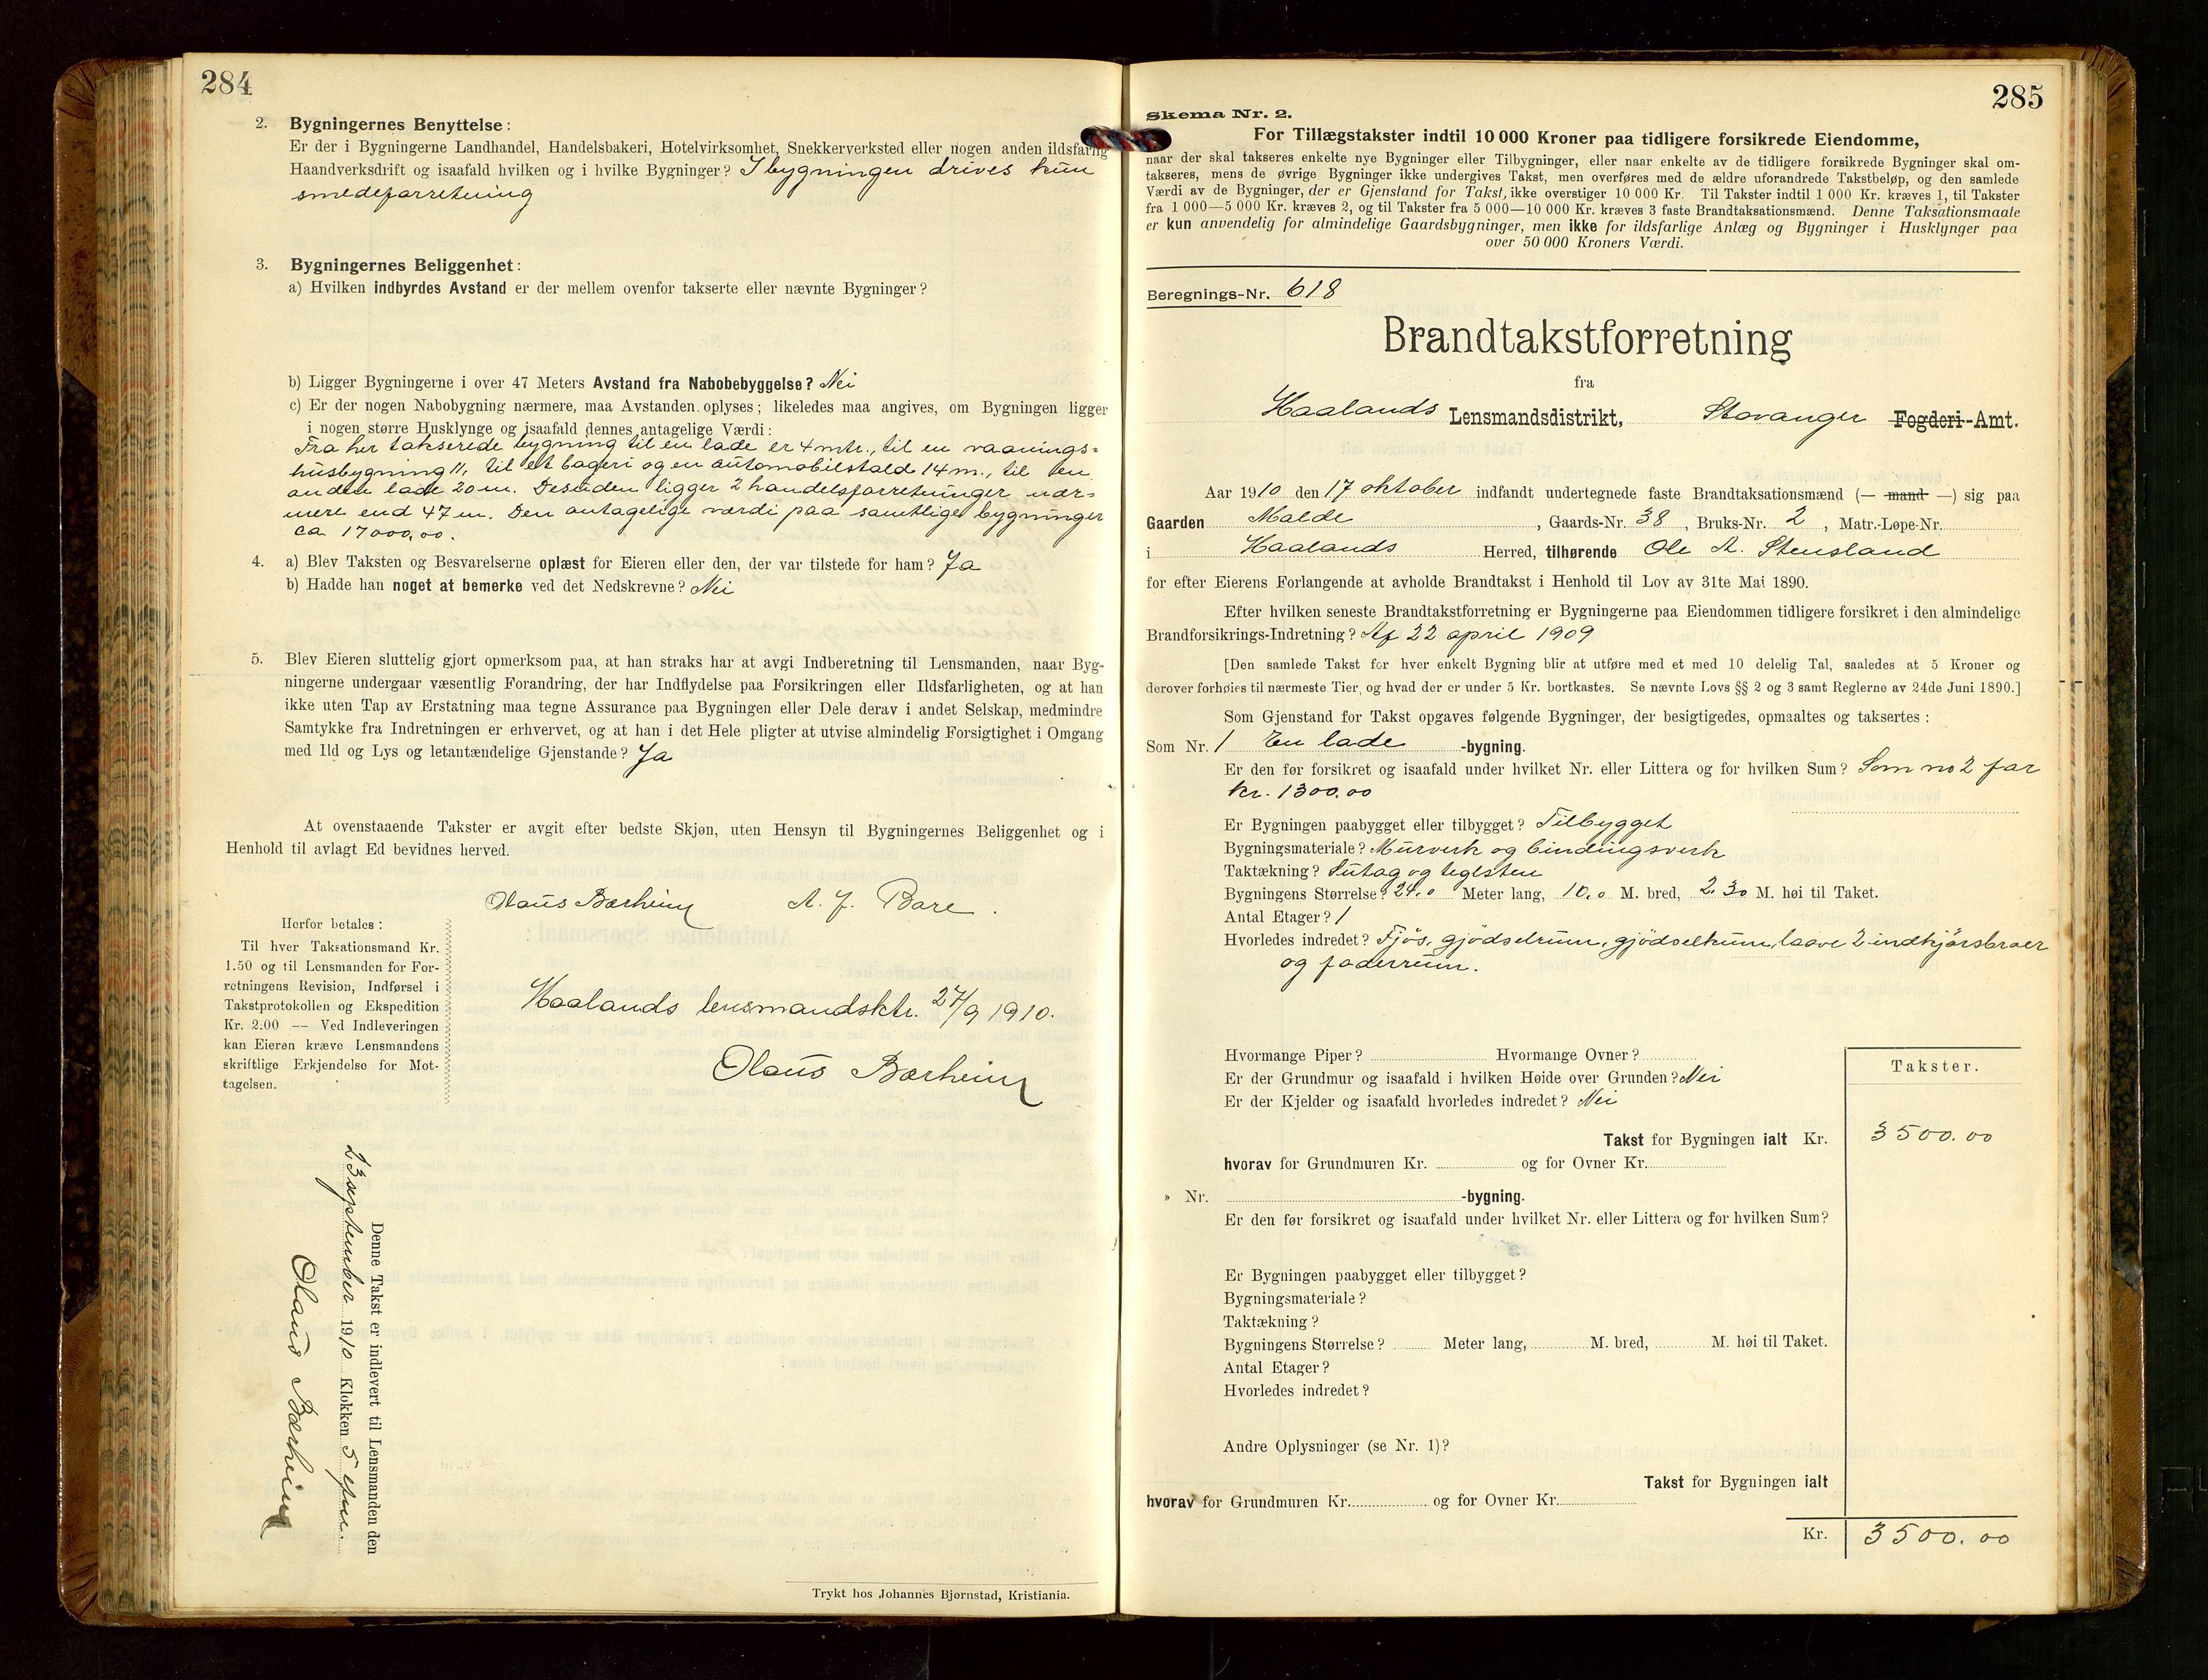 284
2. Bygningernes Benyttelse:
Er der i Bygningerne Landhandel, Handelsbakeri, Hotelvirksomhet, Snekkerverksted eller nogen anden ildsfarlig
Haandverksdrift og isaafald hvilken og i hvilke Bygninger? I bygningen drives kun
smedeforretning
3. Bygningernes Beliggenhet:
a) Hvilken indbyrdes Avstand er der mellem ovenfor takserte eller nævnte Bygninger?
b) Ligger Bygningerne i over 47 Meters Avstand fra Nabobebyggelse? Nei
c) Er der nogen Nabobygning nærmere, maa Avstanden oplyses; likeledes maa angives, om Bygningen ligger
i nogen større Husklynge og isaafald dennes antagelige Værdi:
Fra her takserede bygning til en lade er 4 mtr., til en vaanings-
husbygning 11, til et bageri og en automobilstald 14 m., til en
anden lade 20 m. Desuden ligger 2 handelsforretninger nær-
mere end 47 m. Den antagelige værdi paa samtlige bygninger
ca 17000,00.
4. a) Blev Taksten og Besvarelserne oplæst for Eieren eller den, der var tilstede for ham? Ja
b) Hadde han noget at bemerke ved det Nedskrevne? Nei
5. Blev Eieren sluttelig gjort opmerksom paa, at han straks har at avgi Indberetning til Lensmanden, naar Byg-
ningerne undergaar væsentlig Forandring, der har Indflydelse paa Forsikringen eller Ildsfarligheten, og at han
ikke uten Tap av Erstatning maa tegne Assurance paa Bygningen eller Dele derav i andet Selskap, medmindre
Samtykke fra Indretningen er erhvervet, og at han i det Hele pligter at utvise almindelig Forsigtighet i Omgang
med Ild og Lys og letantændelige Gjenstande? Ja
At ovenstaaende Takster er avgit efter bedste Skjøn, uten Hensyn til Bygningernes Beliggenhet og i
Henhold til avlagt Ed bevidnes herved.
Olaus Bærheim A. J. Bare.
Herfor betales:
Til hver Taksationsmand Kr.
1.50 og til Lensmanden for For-
retningens Revision, Indførsel i
Takstprotokollen og Ekspedition
Kr. 2.00 — Ved Indleveringen
kan Eieren kræve Lensmandens
skriftlige Erkjendelse for Mot-
tagelsen.
Haalands lensmandsktr. 27/9 1910.
Olaus Bærheim
Denne Takst er indlevert til Lensmanden den
23 september 1910 Klokken 5 efm.
Olaus Bærheim
Trykt hos Johannes Bjørnstad, Kristiania.
285
Skema Nr. 2.
For Tillægstakster indtil 10 000 Kroner paa tidligere forsikrede Eiendomme,
naar der skal takseres enkelte nye Bygninger eller Tilbygninger, eller naar enkelte av de tidligere forsikrede Bygninger skal om-
takseres, mens de øvrige Bygninger ikke undergives Takst, men overføres med de ældre uforandrede Takstbeløp, og den samlede
Værdi av de Bygninger, der er Gjenstand for Takst, ikke overstiger 10 000 Kr. Til Takster indtil 1 000 Kr. kræves 1, til Takster
fra 1 000—5 000 Kr. kræves 2, og til Takster fra 5 000—10 000 Kr. kræves 3 faste Brandtaksationsmænd. Denne Taksationsmaate
er kun anvendelig for almindelige Gaardsbygninger, men ikke for ildsfarlige Anlæg og Bygninger i Husklynger paa
over 50 000 Kroners Værdi.
Beregnings-Nr. 618
Brandtakstforretning
fra
Haalands Lensmandsdistrikt, Stavanger Fogderi-Amt.
Aar 1910 den 17 oktober indfandt undertegnede faste Brandtaksationsmænd (— mand —) sig paa
Gaarden Malde, Gaards-Nr. 38, Bruks-Nr. 2, Matr.-Løpe-Nr.
i Haalands Herred, tilhørende Ole A. Stensland
for efter Eierens Forlangende at avholde Brandtakst i Henhold til Lov av 31te Mai 1890.
Efter hvilken seneste Brandtakstforretning er Bygningerne paa Eiendommen tidligere forsikret i den almindelige
Brandforsikrings-Indretning? Af 22 april 1909
[Den samlede Takst for hver enkelt Bygning blir at utføre med et med 10 delelig Tal, saaledes at 5 Kroner og
derover forhøies til nærmeste Tier, og hvad der er under 5 Kr. bortkastes. Se nævnte Lovs §§ 2 og 3 samt Reglerne av 24de Juni 1890.]
Som Gjenstand for Takst opgaves følgende Bygninger, der besigtigedes, opmaaltes og taksertes:
Som Nr. 1 En lade -bygning.
Er den før forsikret og isaafald under hvilket Nr. eller Littera og for hvilken Sum? Som no 2 for
kr. 1300.00
Er Bygningen paabygget eller tilbygget? Tilbygget
Bygningsmateriale? Murverk og bindingsverk
Taktækning? Sutag og teglsten
Bygningens Størrelse? 24.0 Meter lang, 10.0 M. bred, 2.30 M. høi til Taket.
Antal Etager? 1
Hvorledes indredet? Fjøs, gjødselrum, gjødselkum, laave 2 indkjørsbroer
og foderrum.
Hvormange Piper? Hvormange Ovner?
Er der Grundmur og isaafald i hvilken Høide over Grunden? Nei
Er der Kjelder og isaafald hvorledes indredet? Nei
Takster.
Takst for Bygningen ialt Kr. 3500.00
hvorav for Grundmuren Kr. og for Ovner Kr.
» Nr. -bygning.
Er den før forsikret og isaafald under hvilket Nr. eller Littera og for hvilken Sum?
Er Bygningen paabygget eller tilbygget?
Bygningsmateriale?
Taktækning?
Bygningens Størrelse? Meter lang, M. bred, M. høi til Taket.
Antal Etager?
Hvorledes indredet?
Andre Oplysninger (se Nr. 1)?
Takst for Bygningen ialt
hvorav for Grundmuren Kr. og for Ovner Kr.
Kr. 3500.00